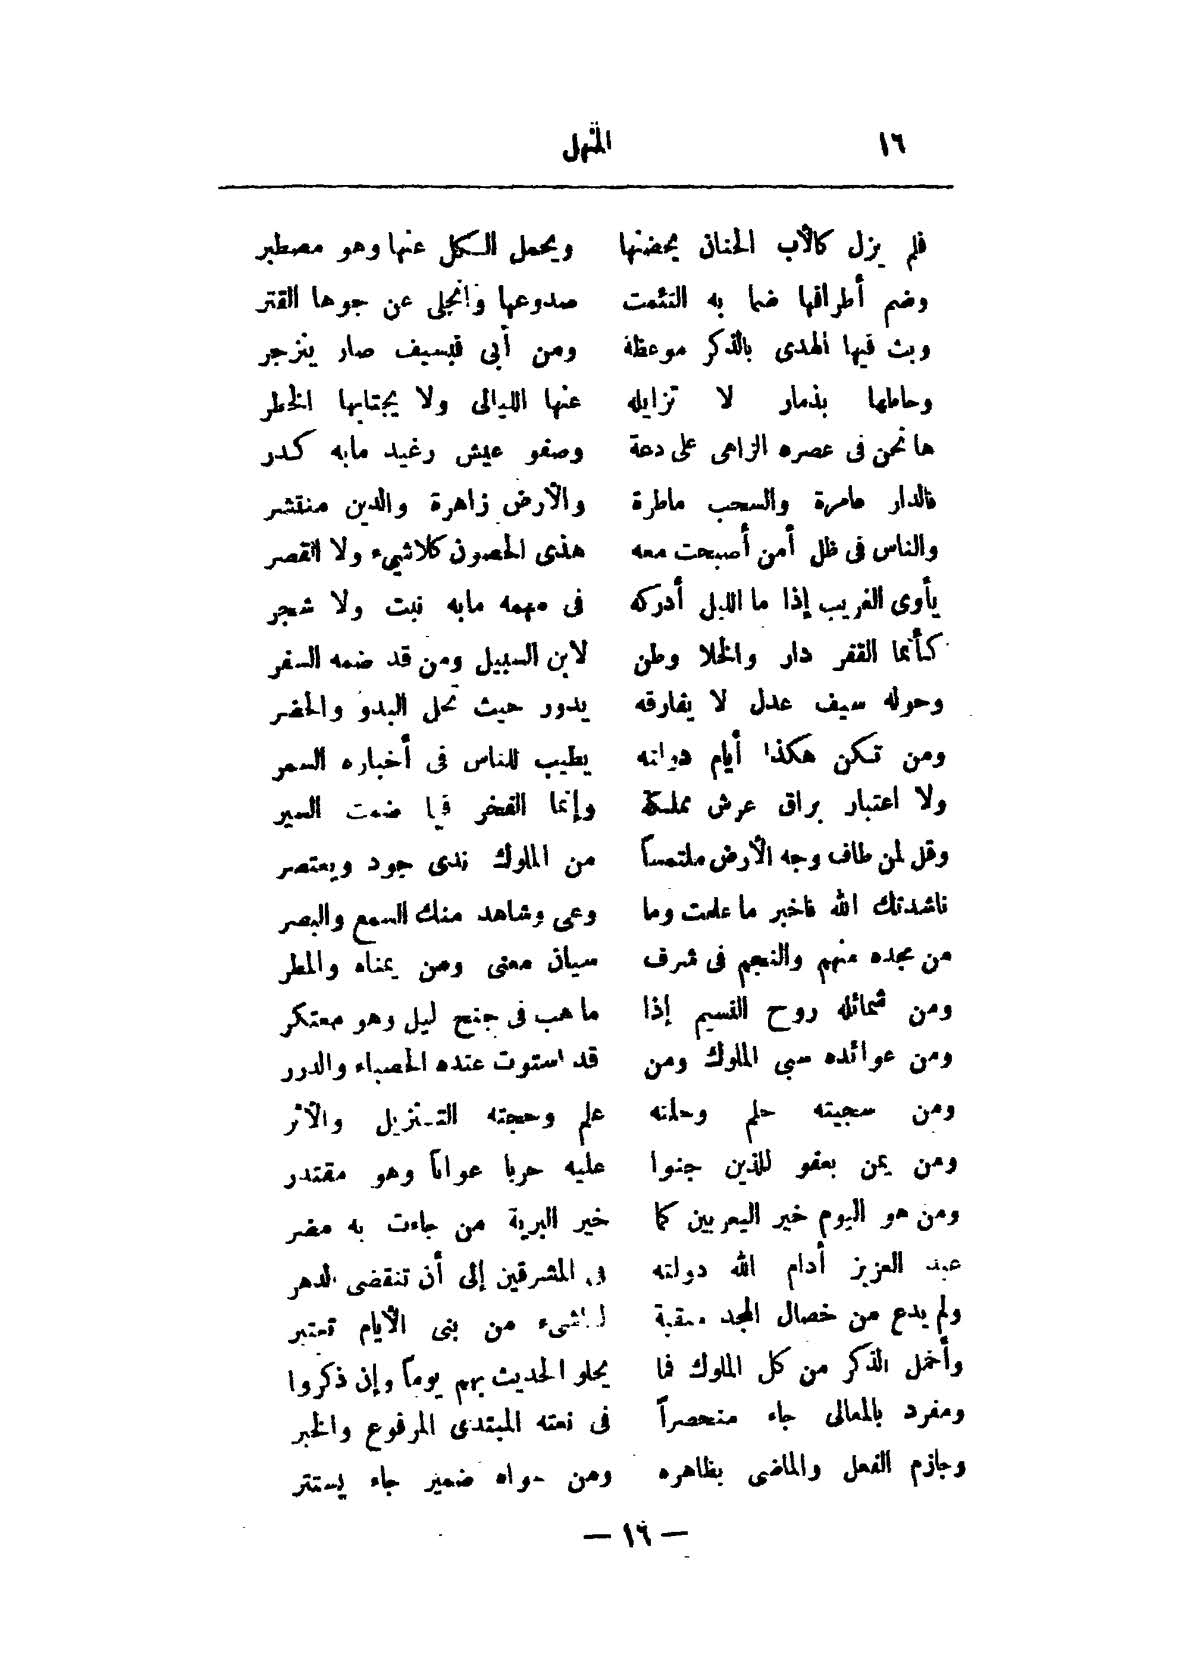 ١٦ المنهل
فلم يزل كالأب الحنان يحضنها ويحمل الكل عنها وهو مصطبر
وضم أطرافها ضما به التئمت صدوعها وانجلى عن جوها القتر
وبث فيها الهدى بالذكر موعظة ومن أبى فبسيف صار ينزجر
وحاطها بذمار لا تزايله عنها الليالى ولا يجتابها الخطر
ها نحن فى عصره الزاهى على دعة وصفو عيش رغيد مابه كدر
فالدار عامرة والسحب ماطرة والأرض زاهرة والدين منتشر
والناس فى ظل أمن أصبحت معه هذى الحصون كلاشيء ولا القصر
يأوى الغريب إذا ما الليل أدركه فى مهمه مابه نبت ولا شجر
كأنما القفر دار والخلا وطن لابن السبيل ومن قد ضمه السفر
وحوله سيف عدل لا يفارقه يدور حيث تحل البدو والحضر
ومن تكن هكذا أيام دولته يطيب للناس فى أخباره السمر
ولا اعتبار براق عرش مملكة وإنما الفخر فيما ضمت السير
وقل لمن طاف وجه الأرض ملتمساً من الملوك ندى جود ويعتصر
ناشدتك الله فاخبر ما علمت وما وعى وشاهد منك السمع والبصر
من مجده منهم والنجم فى شرف سيان معنى ومن يمناه والمطر
ومن شمائله روح النسيم إذا ما هب فى جنح ليل وهو معتكر
ومن عوائده سبي الملوك ومن قد استوت عنده الحصباء والدرر
ومن سجيته حلم وحلته علم وحجته التنزيل والأثر
ومن يمن بعفو للذين جنوا عليه حربا عواناً وهو مقتدر
ومن هو اليوم خير اليعربين كما خير البرية من جاءت به مضر
عبد العزيز أدام الله دولته فى المشرقين إلى أن تنقضى الدهر
ولم يدع من خصال المجد منقبة لناشىء من بنى الأيام تعتبر
وأخمل الذكر من كل الملوك فما يحلو الحديث بهم يوماً وإن ذكروا
ومفرد بالمعالى جاء منحصراً فى نعته المبتدى المرفوع والخبر
وجازم الفعل والماضى بظاهره ومن سواه ضمير جاء يستتر
— ١٦ —